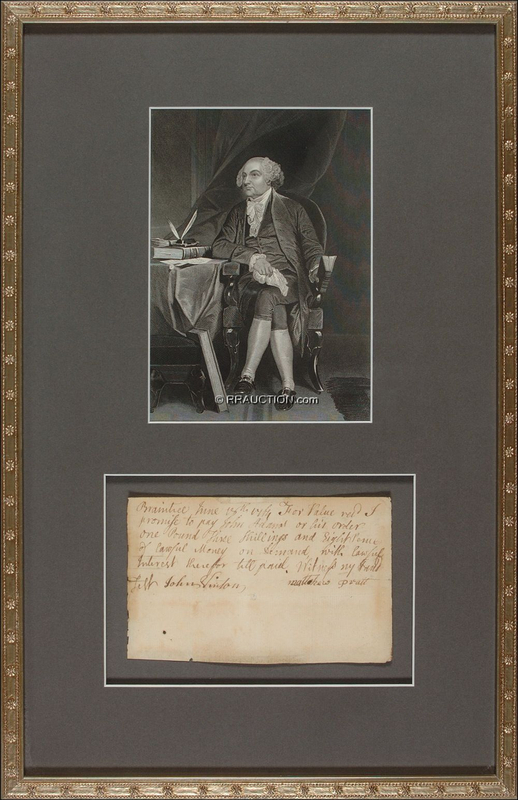 © RRAUCTION.com
Braintree June For Value recd I
promise to pay John Adams or his order
one Pound Three Shillings and Eight Pence
of Lawful Money on Demand with Lawful
Interest therefor till paid. Witness my hand
Test John